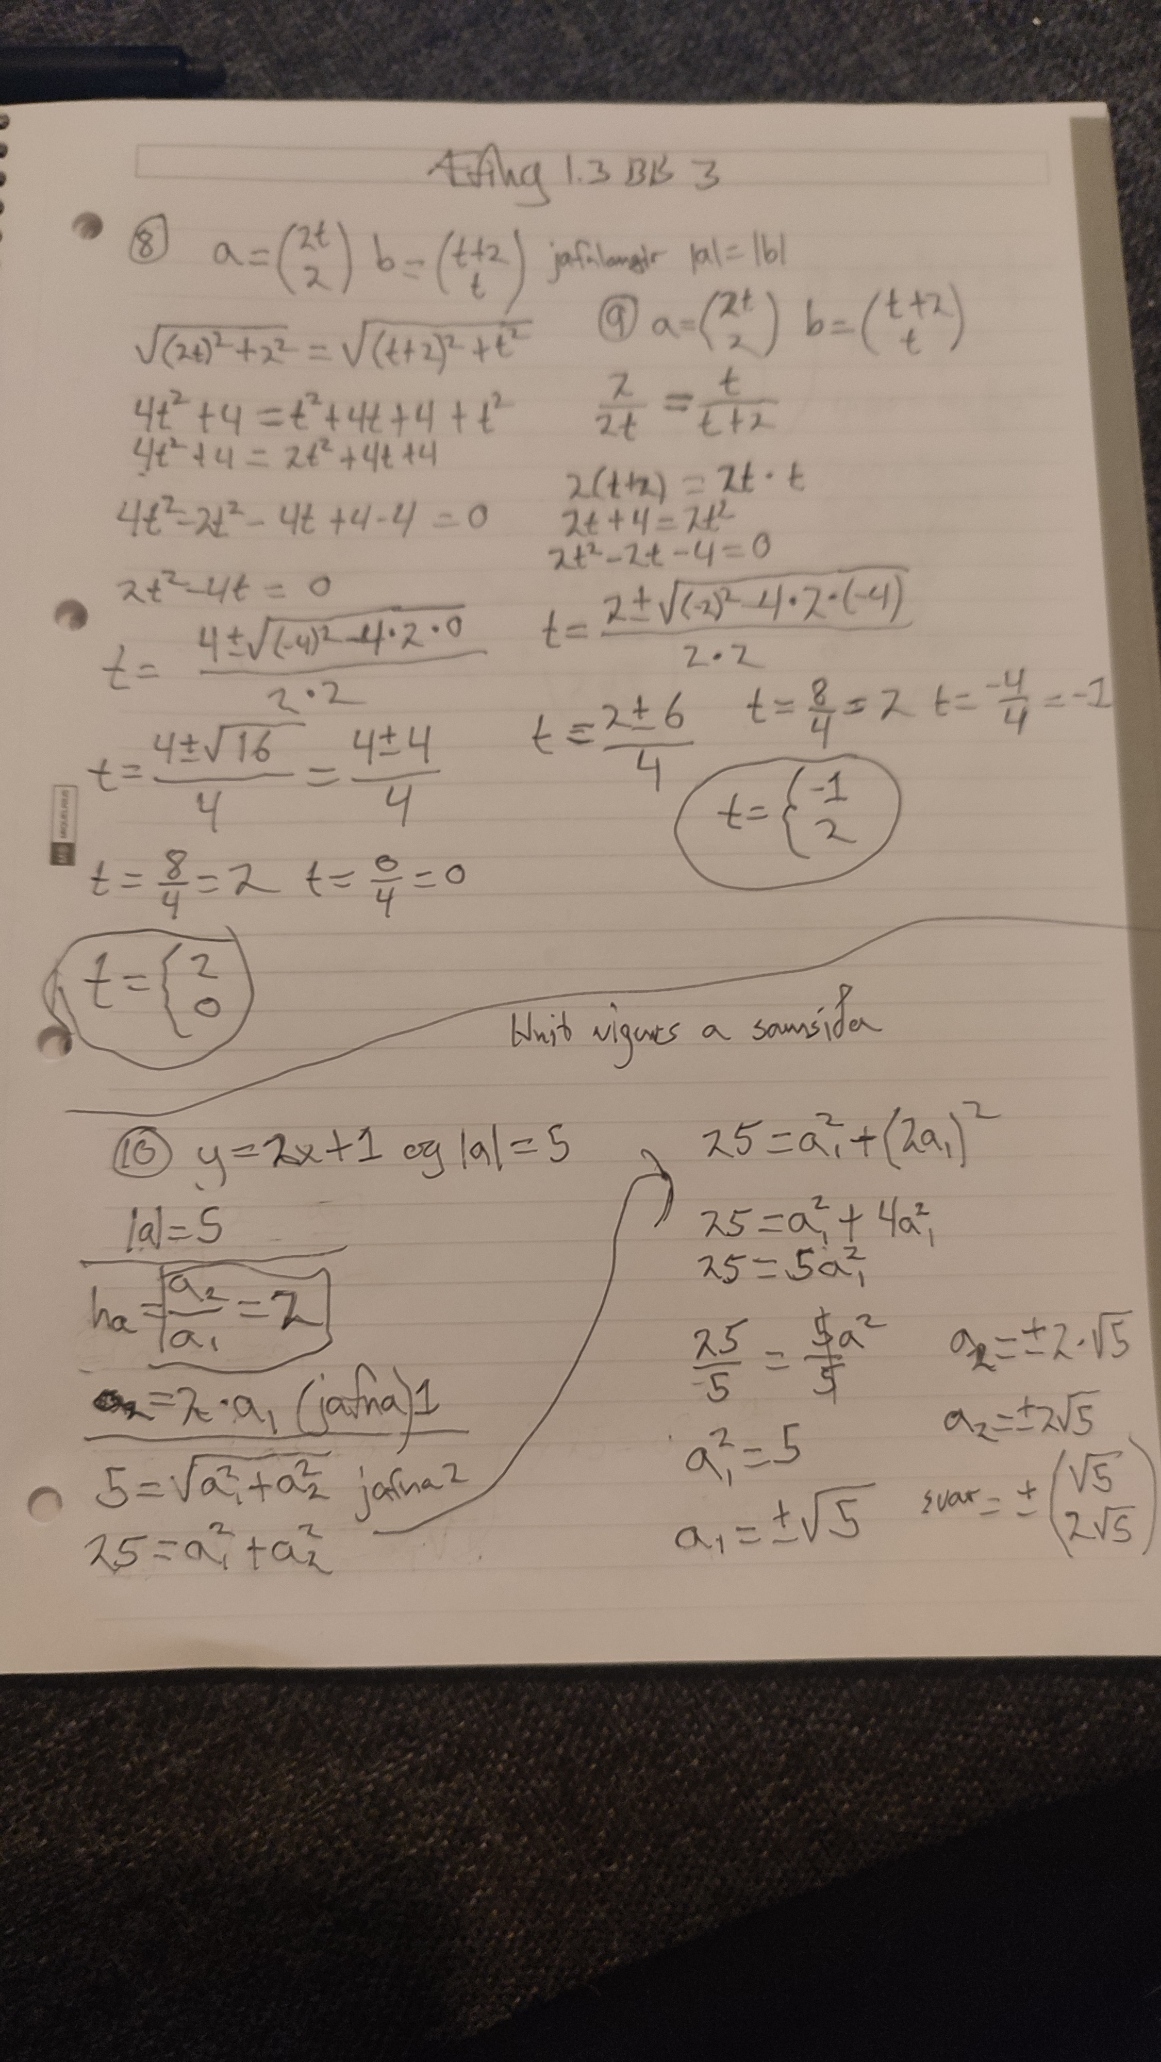 Æfing 1.3 BB 3
⑧ a=(2t 2) b=(t+2 t) jafnlangir |a|=|b|
√(2t)²+2² = √(t+2)²+t²
4t²+4 = t²+4t+4+t²
4t²+4 = 2t²+4t+4
4t²-2t²-4t+4-4 = 0
2t²-4t = 0
t = 4±√(-4)²-4·2·0 / 2·2
t = 4±√16 / 4 = 4±4 / 4
t = 8/4 = 2 t = 0/4 = 0
t = { 2 0
⑨ a=(2t 2) b=(t+2 t)
2/2t = t/t+2
2(t+2) = 2t·t
2t+4 = 2t²
2t²-2t-4 = 0
t = 2±√(-2)²-4·2·(-4) / 2·2
t = 2±6 / 4 t = 8/4 = 2 t = -4/4 = -1
t = { -1 2
Hnit vigurs a samsíða
⑩ y=2x+1 og |a|=5
|a|=5
ha = a₂/a₁ = 2
a₂ = 2·a₁ (jafna)1
5 = √a₁²+a₂² jafna 2
25 = a₁²+a₂²
25 = a₁²+(2a₁)²
25 = a₁²+4a₁²
25 = 5a₁²
25/5 = 5a²/5
a₁² = 5
a₁ = ±√5
a₂ = ±2·√5
a₂ = ±2√5
svar = ±(√5 2√5)